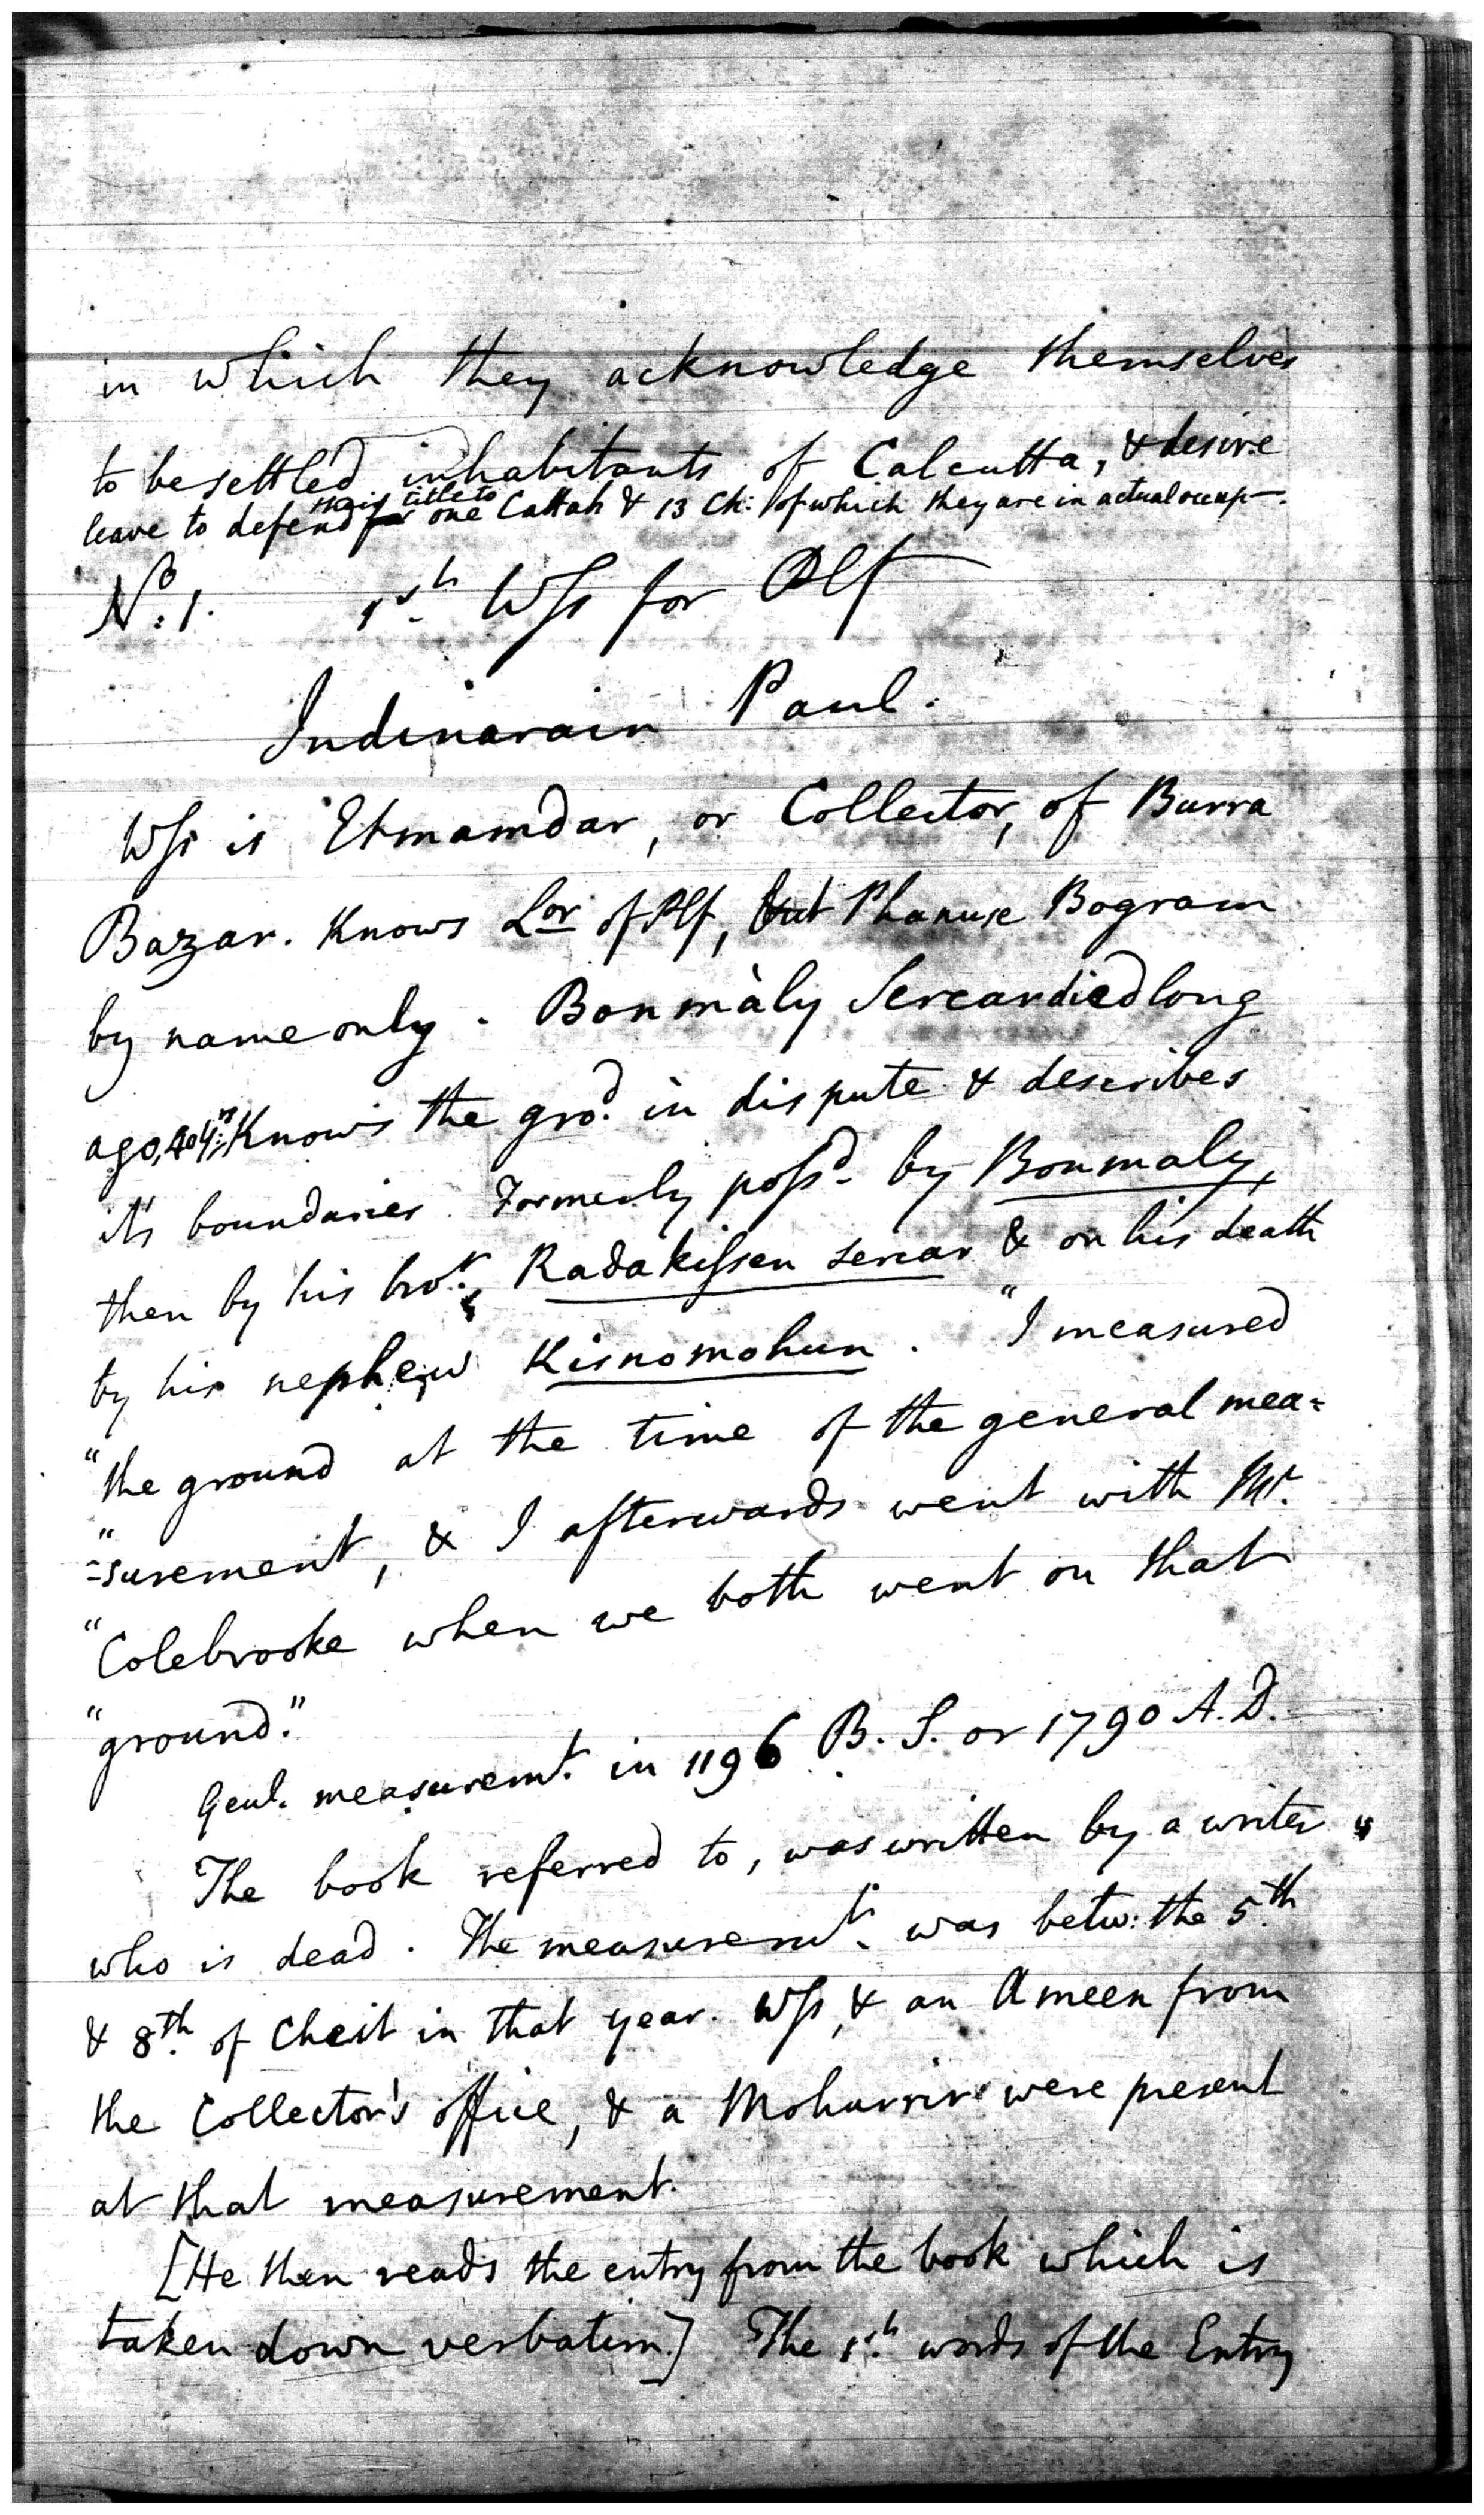 in which they acknowledge themselves
to be settled inhabitants of Calcutta, & desire
their title to
leave to defend for one Cattah & 13 Ch: of which they are in actual occup-.
No. 1. 1st Wss for Plf
Indinarain Paul.
Wss is Etmamdar, or Collector, of Burra
Bazar. Knows Lor of Plf, but Phanuse Bogram
by name only. Bonmàly Sercar died long
ago, 20 Yrs. Knows the grod. in dispute & describes
it's boundaries. Formerly possd. by Bonmaly,
then by his bror., Radakissen Sercar & on his death
by his nephew Kisnomohun. "I measured
"the ground at the time of the general mea=
"=surement, & I afterwards went with Mr.
"Colebrooke when we both went on that
"ground."
Genl. measuremt. in 1196 B. S. or 1790 A. D.
The book referred to, was written by a writer
who is dead. The measuremt. was betw: the 5th
& 8th. of Cheit in that year. Wss, & an Ameen from
the Collector's office, & a Mohurrir were present
at that measurement.
[He then reads the entry from the book which is
taken down verbatim.] The 1st. words of the Entry